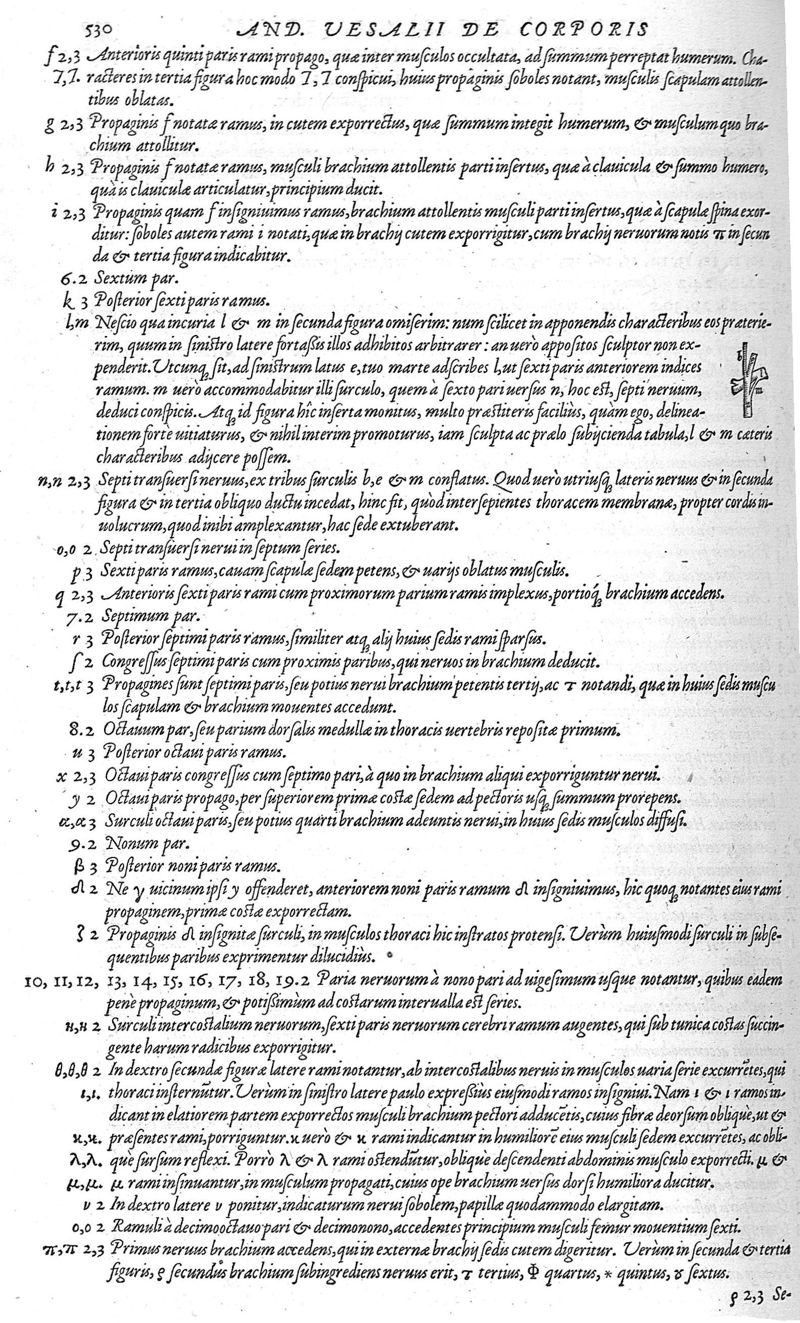 530 AND. VESALII DE CORPORIS
f 2,3 Anterioris quinti paris rami propago, quæ inter musculos occultata, ad summum perreptat humerum. Cha-
7,7. racteres in tertia figura hoc modo 7, 7 conspicui, huius propaginis soboles notant, musculis scapulam attollen-
tibus oblatas.
g 2,3 Propaginis f notatæ ramus, in cutem exporrectus, quæ summum integit humerum, & musculum quo bra-
chium attollitur.
h 2,3 Propaginis f notatæ ramus, musculi brachium attollentis parti insertus, quæ à clauicula & summo humero,
quà is clauiculæ articulatur, principium ducit.
i 2,3 Propaginis quam f insigniuimus ramus, brachium attollentis musculi parti insertus, quæ à scapulæ spina exor-
ditur: soboles autem rami i notati, quæ in brachij cutem exporrigitur, cum brachij neruorum notis π in secun
da & tertia figura indicabitur.
6.2 Sextum par.
k 3 Posterior sexti paris ramus.
l,m Nescio qua incuria l & m in secunda figura omiserim: num scilicet in apponendis characteribus eos præterie-
rim, quum in sinistro latere fortassis illos adhibitos arbitrarer: an uerò appositos sculptor non ex-
penderit. Utcunq; sit, ad sinistrum latus e, tuo marte adscribes l, ut sexti paris anteriorem indices
ramum. m uerò accommodabitur illi surculo, quem à sexto pari uersus n, hoc est, septi neruum,
deduci conspicis. Atq; id figura hic inserta monitus, multo præstiteris facilius, quàm ego, delinea-
tionem forte uitiaturus, & nihil interim promoturus, iam sculpta ac prælo subijcienda tabula, l & m cæteris
characteribus adijcere possem.
n,n 2,3 Septi transuersi neruus, ex tribus surculis b,e & m conflatus. Quod uerò utriusq; lateris neruus & in secunda
figura & in tertia obliquo ductu incedat, hinc fit, quòd intersepientes thoracem membranæ, propter cordis in-
uolucrum, quod inibi amplexantur, hac sede extuberant.
o,o 2 Septi transuersi nerui in septum series.
p 3 Sexti paris ramus, cauam scapulæ sedem petens, & uarijs oblatus musculis.
q 2,3 Anterioris sexti paris rami cum proximorum parium ramis implexus, portioq́; brachium accedens.
7.2 Septimum par.
r 3 Posterior septimi paris ramus, similiter atq; alij huius sedis rami sparsus.
ſ 2 Congressus septimi paris cum proximis paribus, qui neruos in brachium deducit.
t,t,t 3 Propagines sunt septimi paris, seu potius nerui brachium petentis tertij, ac τ notandi, quæ in huius sedis muscu
los scapulam & brachium mouentes accedunt.
8.2 Octauum par, seu parium dorsalis medullæ in thoracis uertebris repositæ primum.
u 3 Posterior octaui paris ramus.
x 2,3 Octaui paris congressus cum septimo pari, à quo in brachium aliqui exporriguntur nerui.
y 2 Octaui paris propago, per superiorem primæ costæ sedem ad pectoris usq; summum prorepens.
α,α 3 Surculi octaui paris, seu potius quarti brachium adeuntis nerui, in huius sedis musculos diffusi.
9.2 Nonum par.
β 3 Posterior noni paris ramus.
δ 2 Ne γ uicinum ipsi y offenderet, anteriorem noni paris ramum δ insigniuimus, hic quoq; notantes eius rami
propaginem, primæ costæ exporrectam.
ζ 2 Propaginis δ insignitæ surculi, in musculos thoraci hic instratos protensi. Verùm huiusmodi surculi in subse-
quentibus paribus exprimentur dilucidiùs.
10, 11, 12, 13, 14, 15, 16, 17, 18, 19.2 Paria neruorum à nono pari ad uigesimum usque notantur, quibus eadem
penè propaginum, & potissimùm ad costarum interualla est series.
η,η 2 Surculi intercostalium neruorum, sexti paris neruorum cerebri ramum augentes, qui sub tunica costas succin-
gente harum radicibus exporrigitur.
θ,θ,θ 2 In dextro secundæ figuræ latere rami notantur, ab intercostalibus neruis in musculos uaria serie excurrẽtes, qui
ι,ι. thoraci insternũtur. Verùm in sinistro latere paulo expressius eiusmodi ramos insigniui. Nam ι & ι ramos in-
dicant in elatiorem partem exporrectos musculi brachium pectori adducẽtis, cuius fibræ deorsum obliquè, ut &
κ,κ. præsentes rami, porriguntur. κ uerò & κ rami indicantur in humiliorẽ eius musculi sedem excurrẽtes, ac obli-
λ,λ. què sursum reflexi. Porrò λ & λ rami ostendũtur, obliquè descendenti abdominis musculo exporrecti. μ &
μ,μ. μ rami insinuantur, in musculum propagati, cuius ope brachium uersus dorsi humiliora ducitur.
ν 2 In dextro latere ν ponitur, indicaturum nerui sobolem, papillæ quodammodo elargitam.
o,o 2 Ramuli à decimooctauo pari & decimonono, accedentes principium musculi femur mouentium sexti.
π,π 2,3 Primus neruus brachium accedens, qui in externæ brachij sedis cutem digeritur. Verùm in secunda & tertia
figuris, ρ secundus brachium subingrediens neruus erit, τ tertius, Φ quartus, * quintus, ȣ sextus.
ρ 2,3 Se-